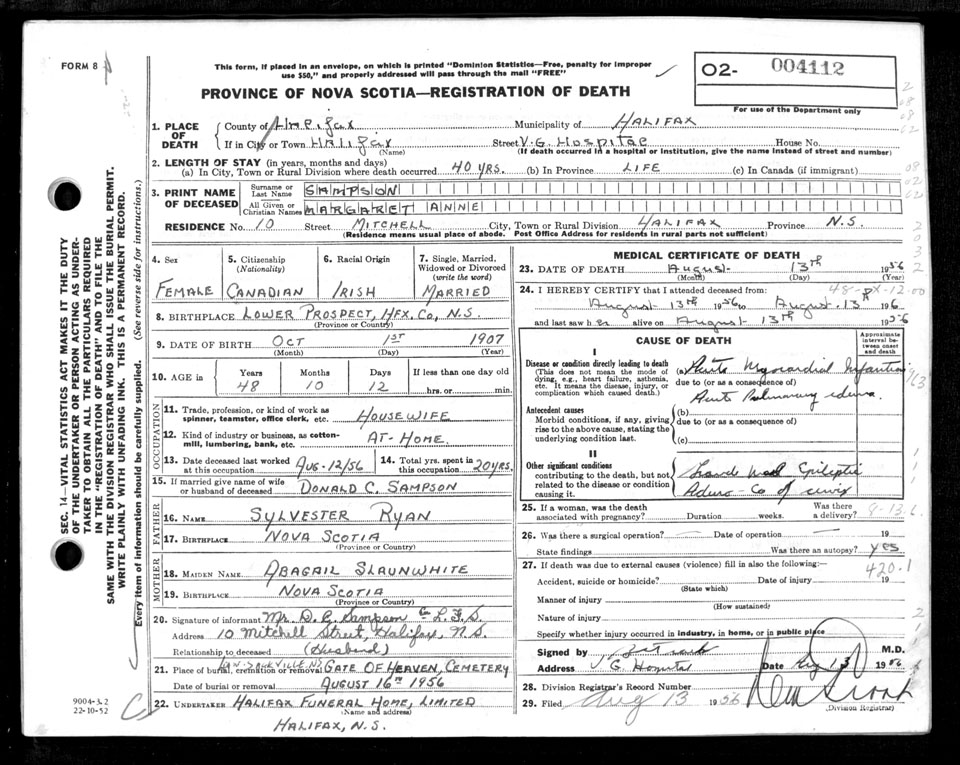 FORM 8
This form, if placed in an envelope, on which is printed "Dominion Statistics—Free, penalty for improper
use $50," and properly addressed will pass through the mail "FREE"
O2- 004112
For use of the Department only
PROVINCE OF NOVA SCOTIA—REGISTRATION OF DEATH
1. PLACE OF DEATH County of Halifax Municipality of HALIFAX
If in City or Town HALIFAX Street V.G. HOSPITAL House No.
(Name) (If death occurred in a hospital or institution, give the name instead of street and number)
2. LENGTH OF STAY (in years, months and days)
(a) In City, Town or Rural Division where death occurred 40 YRS. (b) In Province LIFE (c) In Canada (if immigrant)
3. PRINT NAME OF DECEASED Surname or Last Name SAMPSON
All Given or Christian Names MARGARET ANNE
RESIDENCE No. 10 Street MITCHELL City, Town or Rural Division HALIFAX Province N.S.
(Residence means usual place of abode. Post Office Address for residents in rural parts not sufficient)
4. Sex 5. Citizenship (Nationality) 6. Racial Origin 7. Single, Married, Widowed or Divorced (write the word)
FEMALE CANADIAN IRISH MARRIED
8. BIRTHPLACE LOWER PROSPECT, HFX. CO., N.S.
(Province or Country)
9. DATE OF BIRTH OCT 1ST 1907
(Month) (Day) (Year)
10. AGE IN Years Months Days If less than one day old
48 10 12 hrs. or min.
OCCUPATION
11. Trade, profession, or kind of work as
spinner, teamster, office clerk, etc. HOUSEWIFE
12. Kind of industry or business, as cotton-
mill, lumbering, bank, etc. AT-HOME.
13. Date deceased last worked at this occupation AUG-12/56 14. Total yrs. spent in this occupation 20 YRS.
15. If married give name of wife
or husband of deceased DONALD C. SAMPSON
FATHER
16. NAME SYLVESTER RYAN
17. BIRTHPLACE NOVA SCOTIA
(Province or Country)
MOTHER
18. MAIDEN NAME ABAGAIL SLAUNWHITE
19. BIRTHPLACE NOVA SCOTIA
(Province or Country)
20. Signature of informant Mr. D. C. Sampson
Address 10 Mitchell Street, Halifax, N.S.
Relationship to deceased (Husband)
21. Place of burial, cremation or removal GATE OF HEAVEN, CEMETERY
Date of burial or removal AUGUST 16TH 1956
22. UNDERTAKER HALIFAX FUNERAL HOME, LIMITED
(Name and address)
HALIFAX, N.S.
MEDICAL CERTIFICATE OF DEATH
23. DATE OF DEATH August 13th 1956
(Month) (Day) (Year)
24. I HEREBY CERTIFY that I attended deceased from:
August 13th 1956 to August 13th 196
and last saw her alive on August 13th 1956
CAUSE OF DEATH
Approximate interval between onset and death
I
Disease or condition directly leading to death
(This does not mean the mode of
dying, e.g., heart failure, asthenia,
etc. It means the disease, injury, or
complication which caused death.)
(a) Acute Myocardial Infarction
due to (or as a consequence of)
Acute Pulmonary edema.
Antecedent causes
Morbid conditions, if any, giving
rise to the above cause, stating the
underlying condition last.
(b)
due to (or as a consequence of)
(c)
II
Other significant conditions
contributing to the death, but not
related to the disease or condition
causing it.
Grande Mal Epileptic
Adeno-Ca of cervix
25. If a woman, was the death
associated with pregnancy? Duration weeks. Was there a delivery?
26. Was there a surgical operation? Date of operation 19
State findings Was there an autopsy? yes
27. If death was due to external causes (violence) fill in also the following: 420.1
Accident, suicide or homicide? Date of injury 19
(State which)
Manner of injury
(How sustained)
Nature of injury
Specify whether injury occurred in industry, in home, or in public place
Signed by M.D.
Address V.G. Hospital Date Aug 13 1956
28. Division Registrar's Record Number
29. Filed Aug 13 1956
(Division Registrar)
SEC. 14—VITAL STATISTICS ACT MAKES IT THE DUTY
OF THE UNDERTAKER OR PERSON ACTING AS UNDER-
TAKER TO OBTAIN ALL THE PARTICULARS REQUIRED
IN THE "REGISTRATION OF DEATH" AND TO FILE THE
SAME WITH THE DIVISION REGISTRAR WHO SHALL ISSUE THE BURIAL PERMIT.
WRITE PLAINLY WITH UNFADING INK. THIS IS A PERMANENT RECORD.
Every item of information should be carefully supplied. (See reverse side for instructions.)
9004-3.2
22-10-52